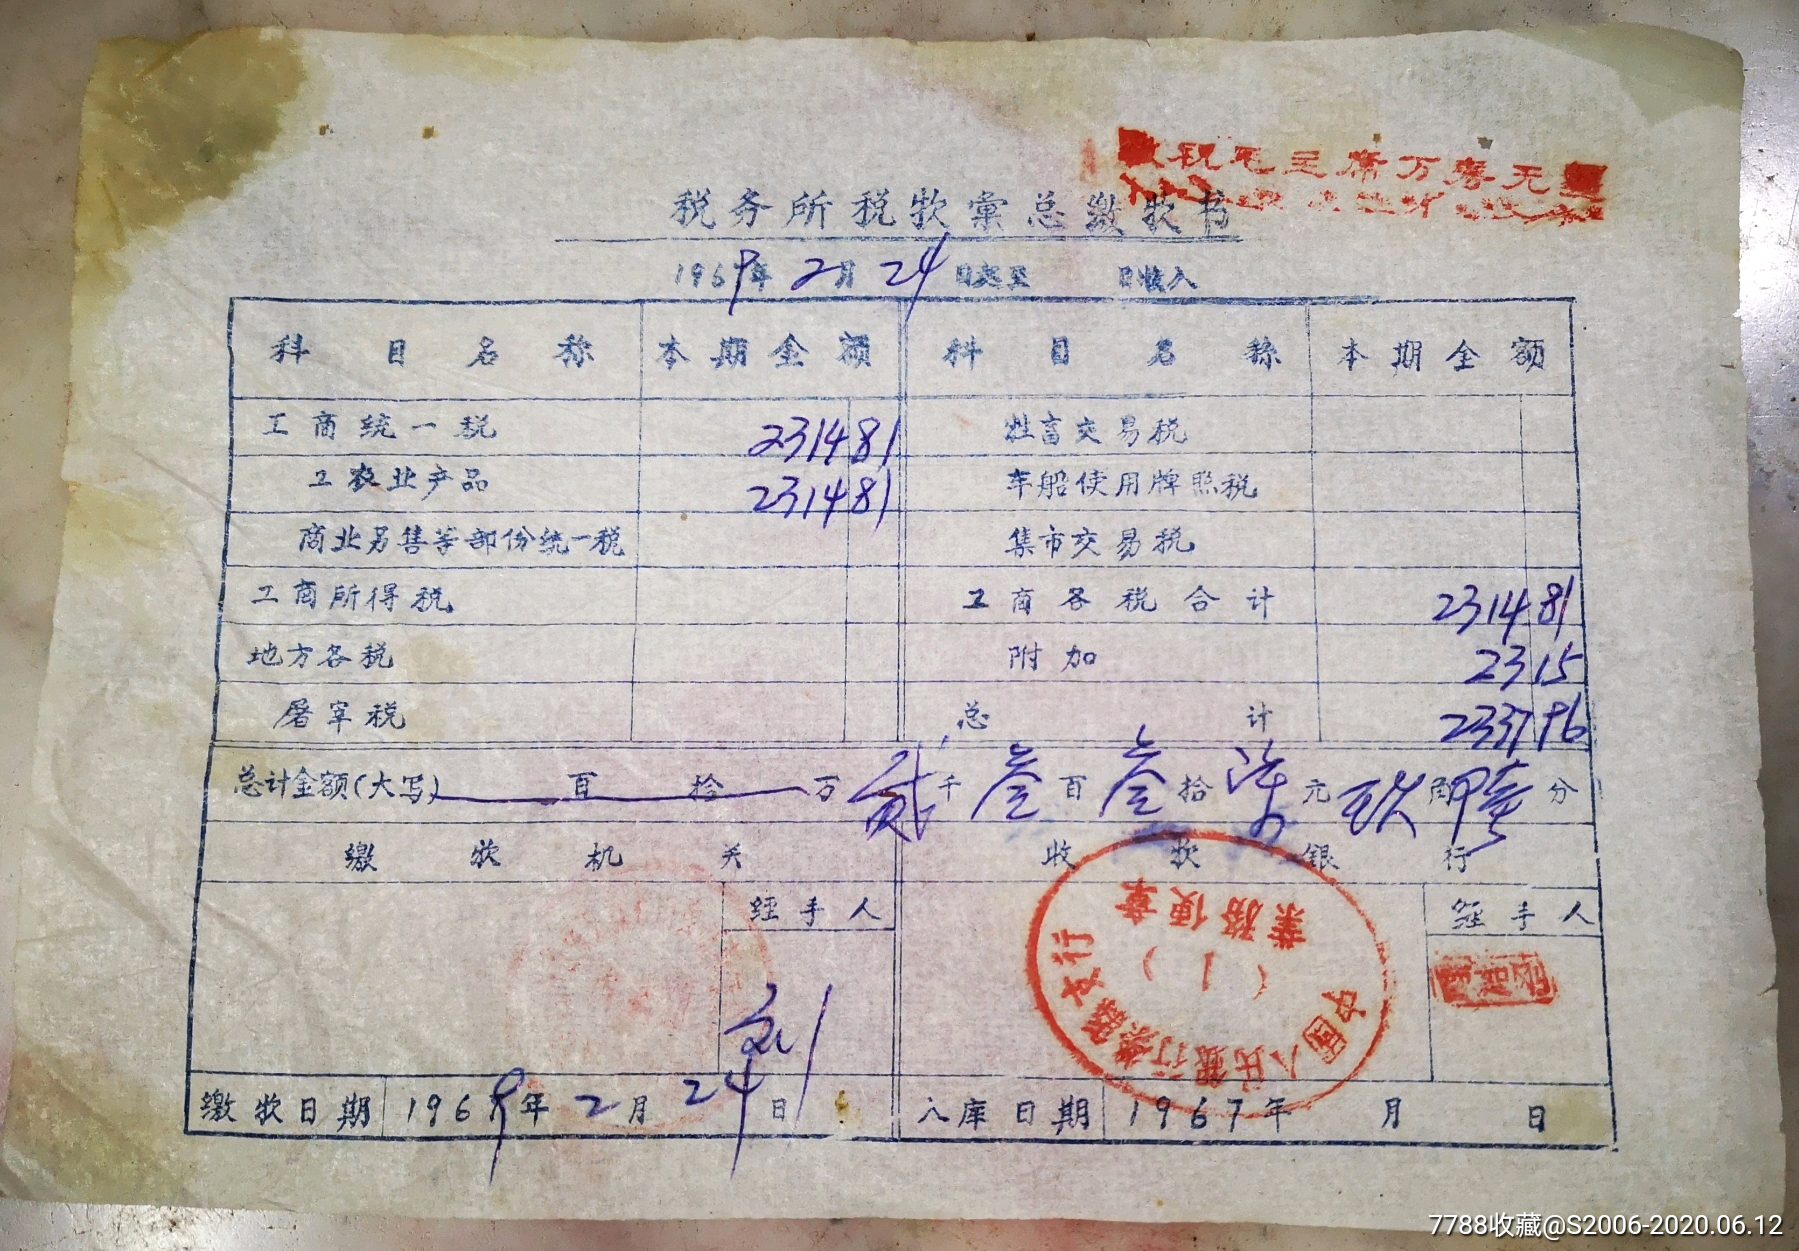 敬祝毛主席万寿无疆
税务所税款汇总缴款书
1969年2月24日起至 日收入
科目名称 本期金额 科目名称 本期金额
工商统一税 2314 81 牲畜交易税
工农业产品 2314 81 车船使用牌照税
商业另售等部份统一税 集市交易税
工商所得税 工商各税合计 2314 81
地方各税 附加 23 15
屠宰税 总计 2337 96
总计金额(大写) 百 拾 万 贰千叁百叁拾柒元玖角陆分
缴款机关 收款银行
经手人 经手人
业务便章
(1)
中国人民银行 支行
刘
缴款日期 1969年2月24日 入库日期 1967年 月 日
7788收藏@S2006-2020.06.12